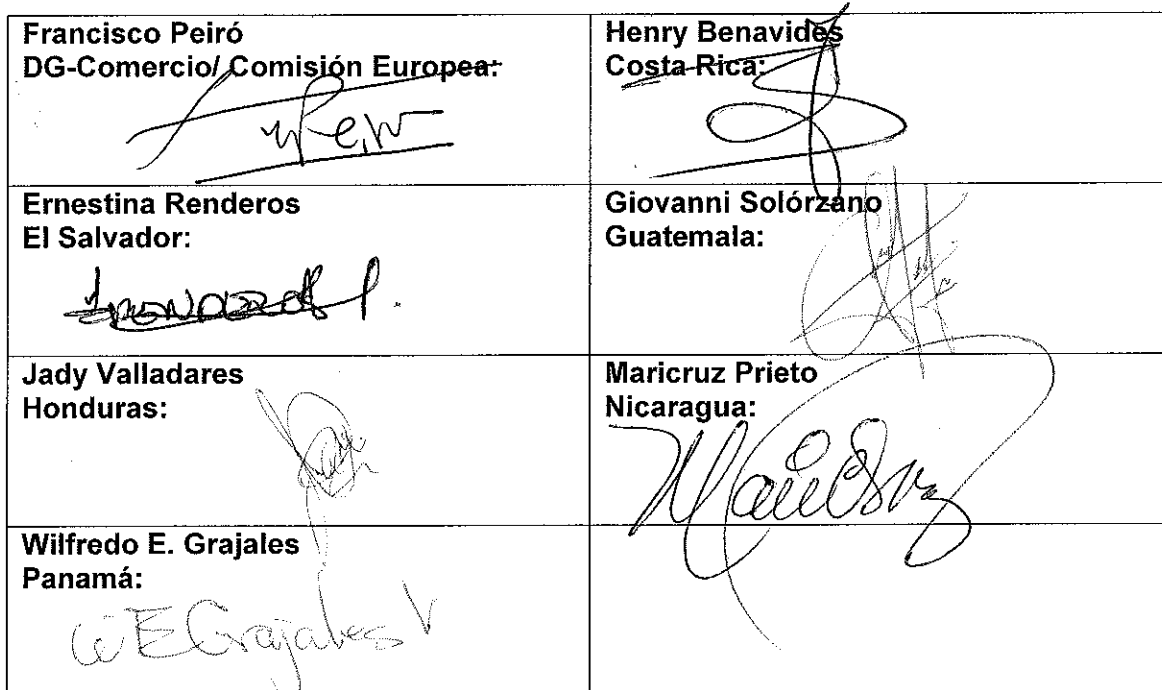 Francisco Peiró
DG-Comercio/ Comisión Europea:
Henry Benavides
Costa Rica:
Ernestina Renderos
El Salvador:
Giovanni Solórzano
Guatemala:
Jady Valladares
Honduras:
Maricruz Prieto
Nicaragua:
Wilfredo E. Grajales
Panamá:
WEGrajales V